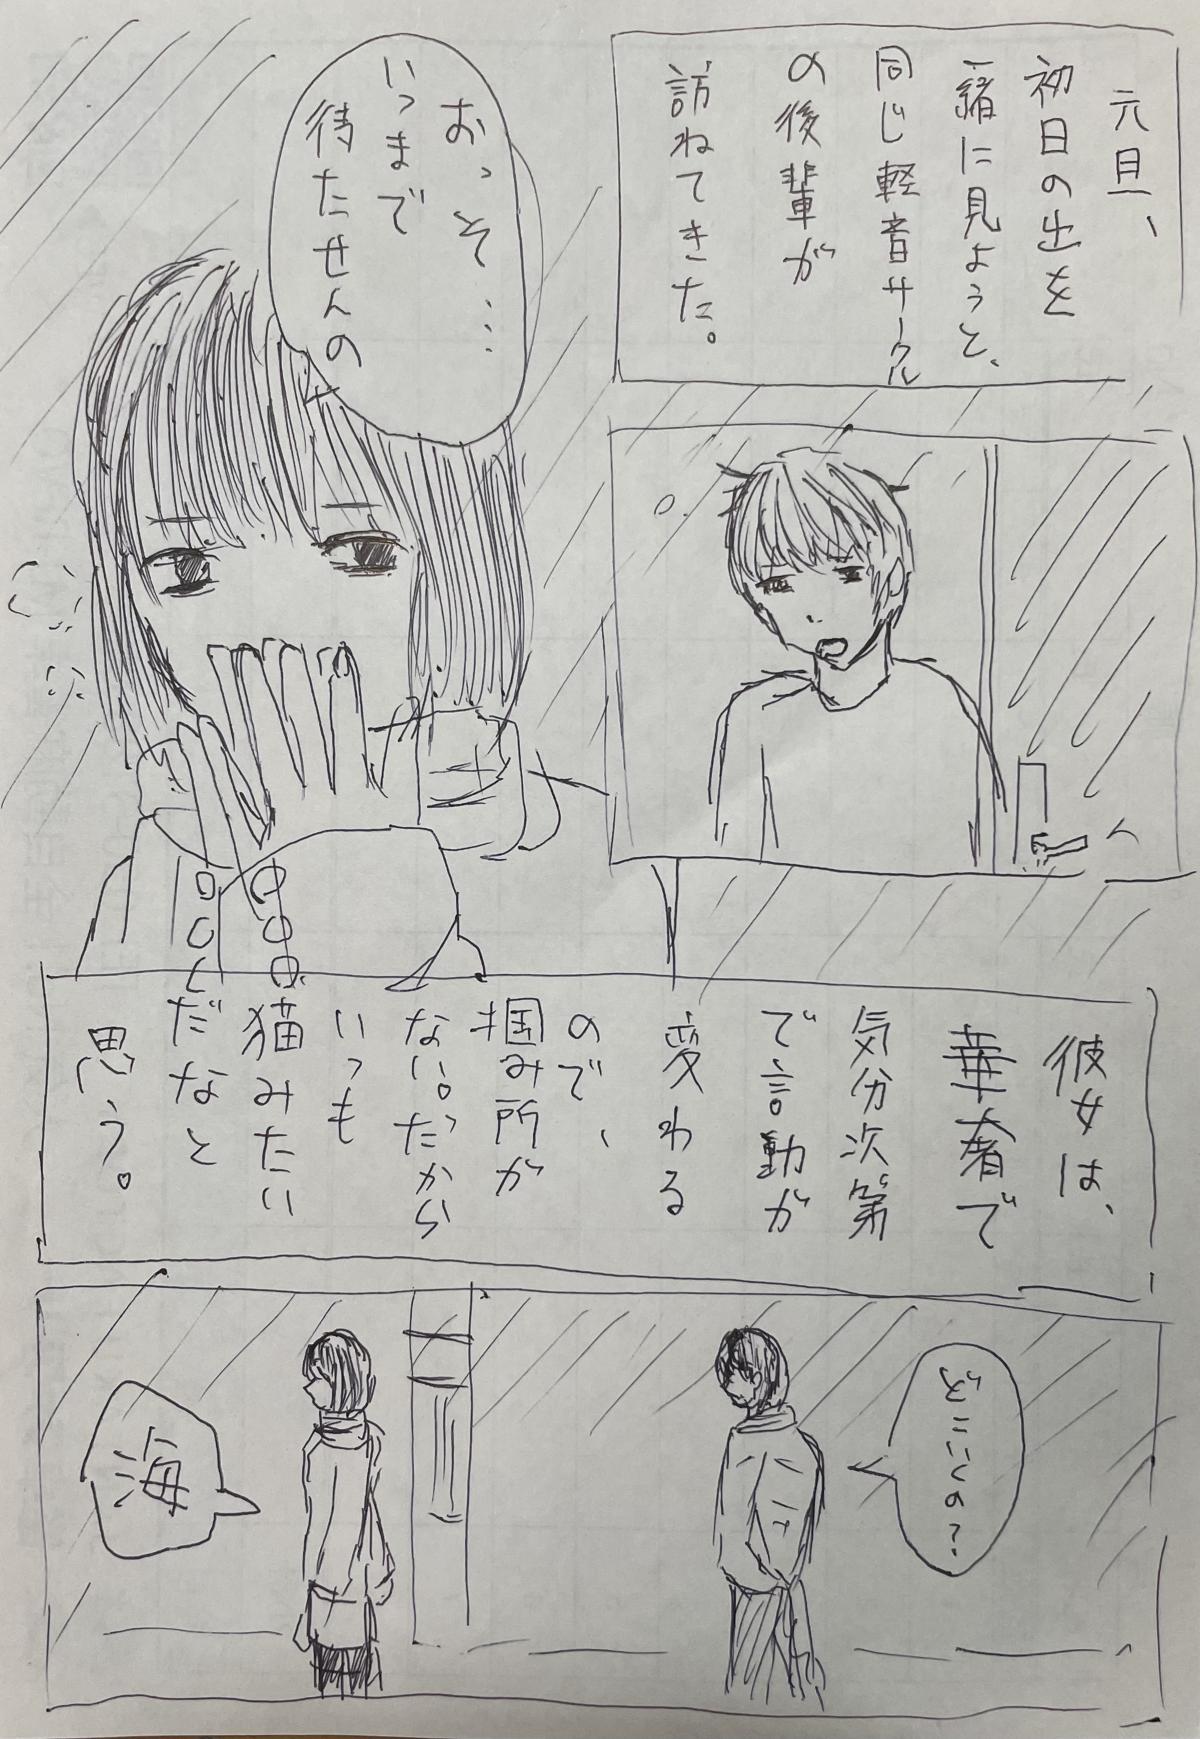 元旦、
初日の出を
一緒に見ようと、
同じ軽音サークル
の後輩が
訪ねてきた。
おっそ…
いつまで
待たせんの
彼女は、
華奢で
気分次第
で言動が
変わる
ので、
掴み所が
ない。だから
いつも
猫みたい
だなと
思う。
どこいくの?
海